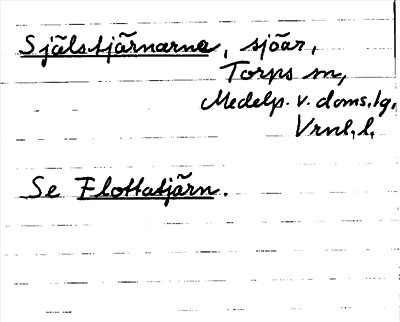 Själstjärnarna, sjöar,
Torps sn,
Medelp. v. doms.lg,
Vrnl. l.
Se Flottatjärn.